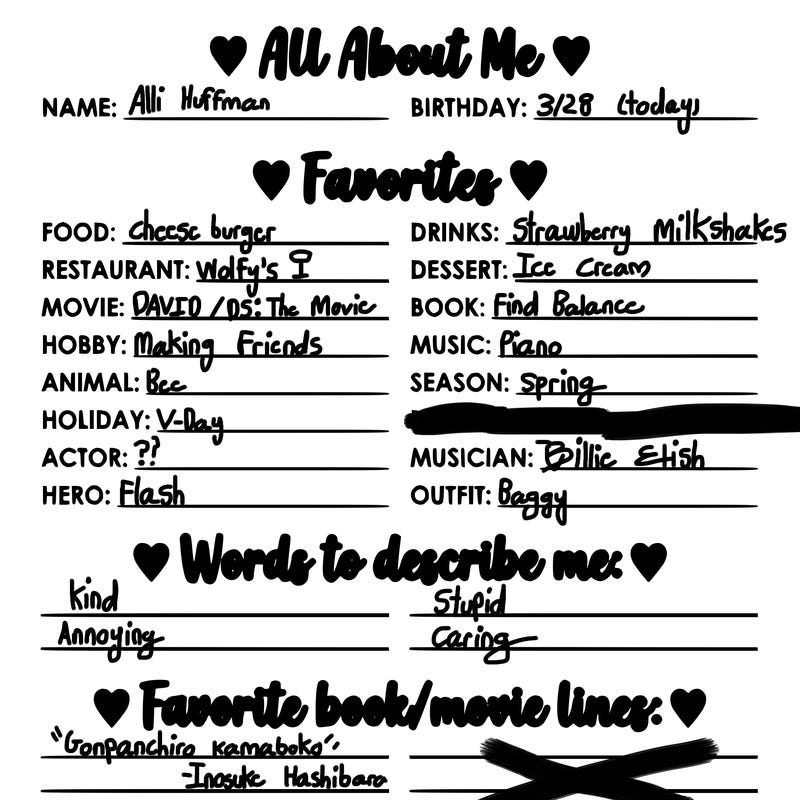 All About Me
NAME: Alli Huffman
BIRTHDAY: 3/28 (today)
Favorites
FOOD: cheese burger
DRINKS: Strawberry Milkshakes
RESTAURANT: Wolfy's
DESSERT: Ice Cream
MOVIE: DAVID / DS: The Movie
BOOK: Find Balance
HOBBY: Making Friends
MUSIC: Piano
ANIMAL: Bee
SEASON: Spring
HOLIDAY: V-Day
ACTOR: ??
MUSICIAN: Billie Elish
HERO: Flash
OUTFIT: Baggy
Words to describe me:
Kind
Stupid
Annoying
Caring
Favorite book/movie lines:
"Gonpanchiro kamaboko"
-Inosuke Hashibara